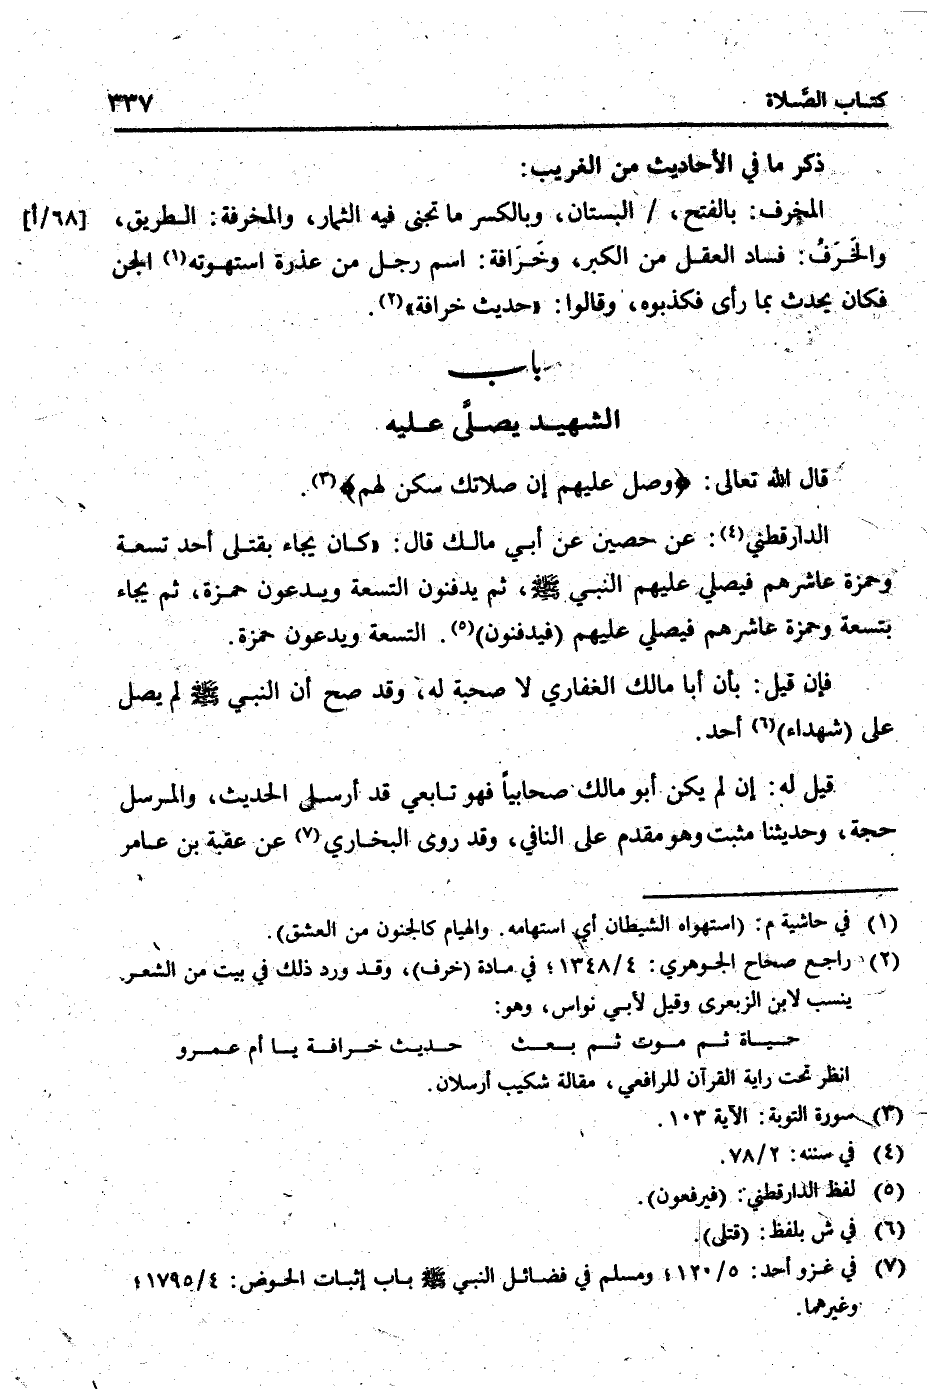 كتاب الصَّلاة ٣٣٧
ذكر ما في الأحاديث من الغريب:
المخرف: بالفتح، / البستان، وبالكسر ما تجنى فيه الثمار، والمخرفة: الطريق، [٦٨/أ]
والخَرَفُ: فساد العقل من الكبر، وخَرَافة: اسم رجل من عذرة استهوته(١) الجن
فكان يحدث بما رأى فكذبوه، وقالوا: «حديث خرافة»(٢).
باب
الشهيد يصلَّى عليه
قال الله تعالى: ﴿وصل عليهم إن صلاتك سكن لهم﴾(٣).
الدارقطني(٤): عن حصين عن أبي مالك قال: «كان يجاء بقتلى أحد تسعة
وحمزة عاشرهم فيصلي عليهم النبي ﷺ، ثم يدفنون التسعة ويدعون حمزة، ثم يجاء
بتسعة وحمزة عاشرهم فيصلي عليهم (فيدفنون)(٥). التسعة ويدعون حمزة.
فإن قيل: بأن أبا مالك الغفاري لا صحبة له، وقد صح أن النبي ﷺ لم يصل
على (شهداء)(٦) أحد.
قيل له: إن لم يكن أبو مالك صحابياً فهو تابعي قد أرسلي الحديث، والمرسل
حجة، وحديثنا مثبت وهو مقدم على النافي، وقد روى البخاري(٧) عن عقبة بن عامر
(١) في حاشية م: (استهواه الشيطان أي استهامه. والهيام كالجنون من العشق).
(٢) راجع صحاح الجوهري: ١٣٤٨/٤؛ في مادة (خرف)، وقد ورد ذلك في بيت من الشعر.
ينسب لابن الزبعرى وقيل لأبي نواس، وهو:
حياة ثم موت ثم بعث حديث خرافة يا أم عمرو
انظر تحت راية القرآن للرافعي، مقالة شكيب أرسلان.
(٣) سورة التوبة: الآية ١٠٣.
(٤) في سننه: ٧٨/٢.
(٥) لفظ الدارقطني: (فيرفعون).
(٦) في ش بلفظ: (قتلى).
(٧) في غزو أحد: ١٢٠/٥؛ ومسلم في فضائل النبي ﷺ باب إثبات الحوض: ١٧٩٥/٤؛
وغيرهما.